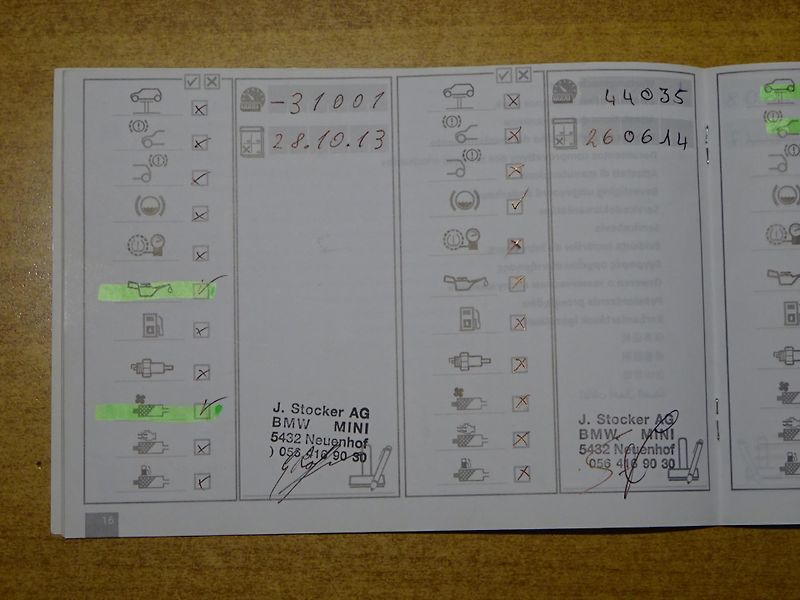 -31001
28.10.13
J. Stocker AG
BMW MINI
5432 Neuenhof
) 056 416 90 30
44035
26 06 14
J. Stocker AG
BMW MINI
5432 Neuenhof
056 416 90 30
16